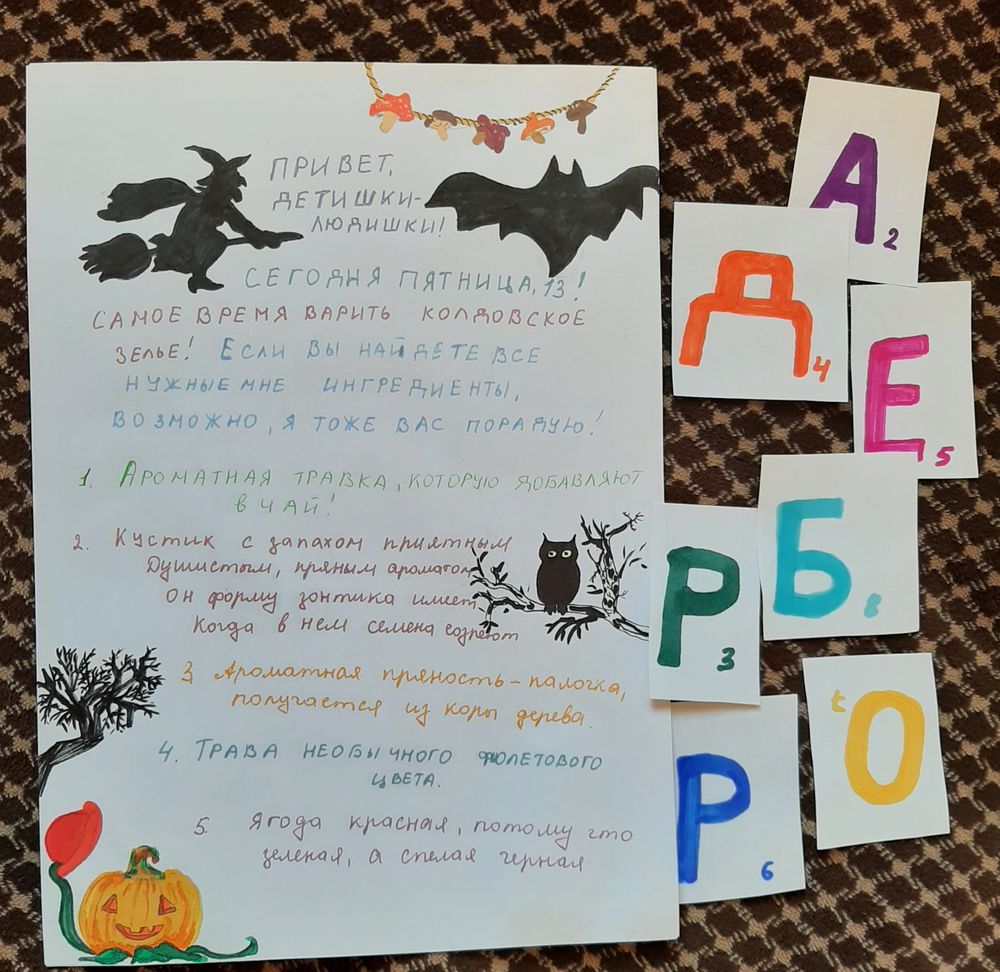 ПРИВЕТ,
ДЕТИШКИ-
ЛЮДИШКИ!
СЕГОДНЯ ПЯТНИЦА, 13!
САМОЕ ВРЕМЯ ВАРИТЬ КОЛДОВСКОЕ
ЗЕЛЬЕ! ЕСЛИ ВЫ НАЙДЕТЕ ВСЕ
НУЖНЫЕ МНЕ ИНГРЕДИЕНТЫ,
ВОЗМОЖНО, Я ТОЖЕ ВАС ПОРАДУЮ!
1. АРОМАТНАЯ ТРАВКА, КОТОРУЮ ДОБАВЛЯЮТ
В ЧАЙ!
2. Кустик с запахом приятным
Душистым, пряным ароматом
Он форму зонтика имеет
Когда в нем семена созреют
3. Ароматная пряность - палочка,
получается из коры дерева.
4. ТРАВА НЕОБЫЧНОГО ФИОЛЕТОВОГО
ЦВЕТА.
5. Ягода красная, потому что
зеленая, а спелая черная
А 2
Д 4
Е 5
Б 8
Р 3
О
Р 6